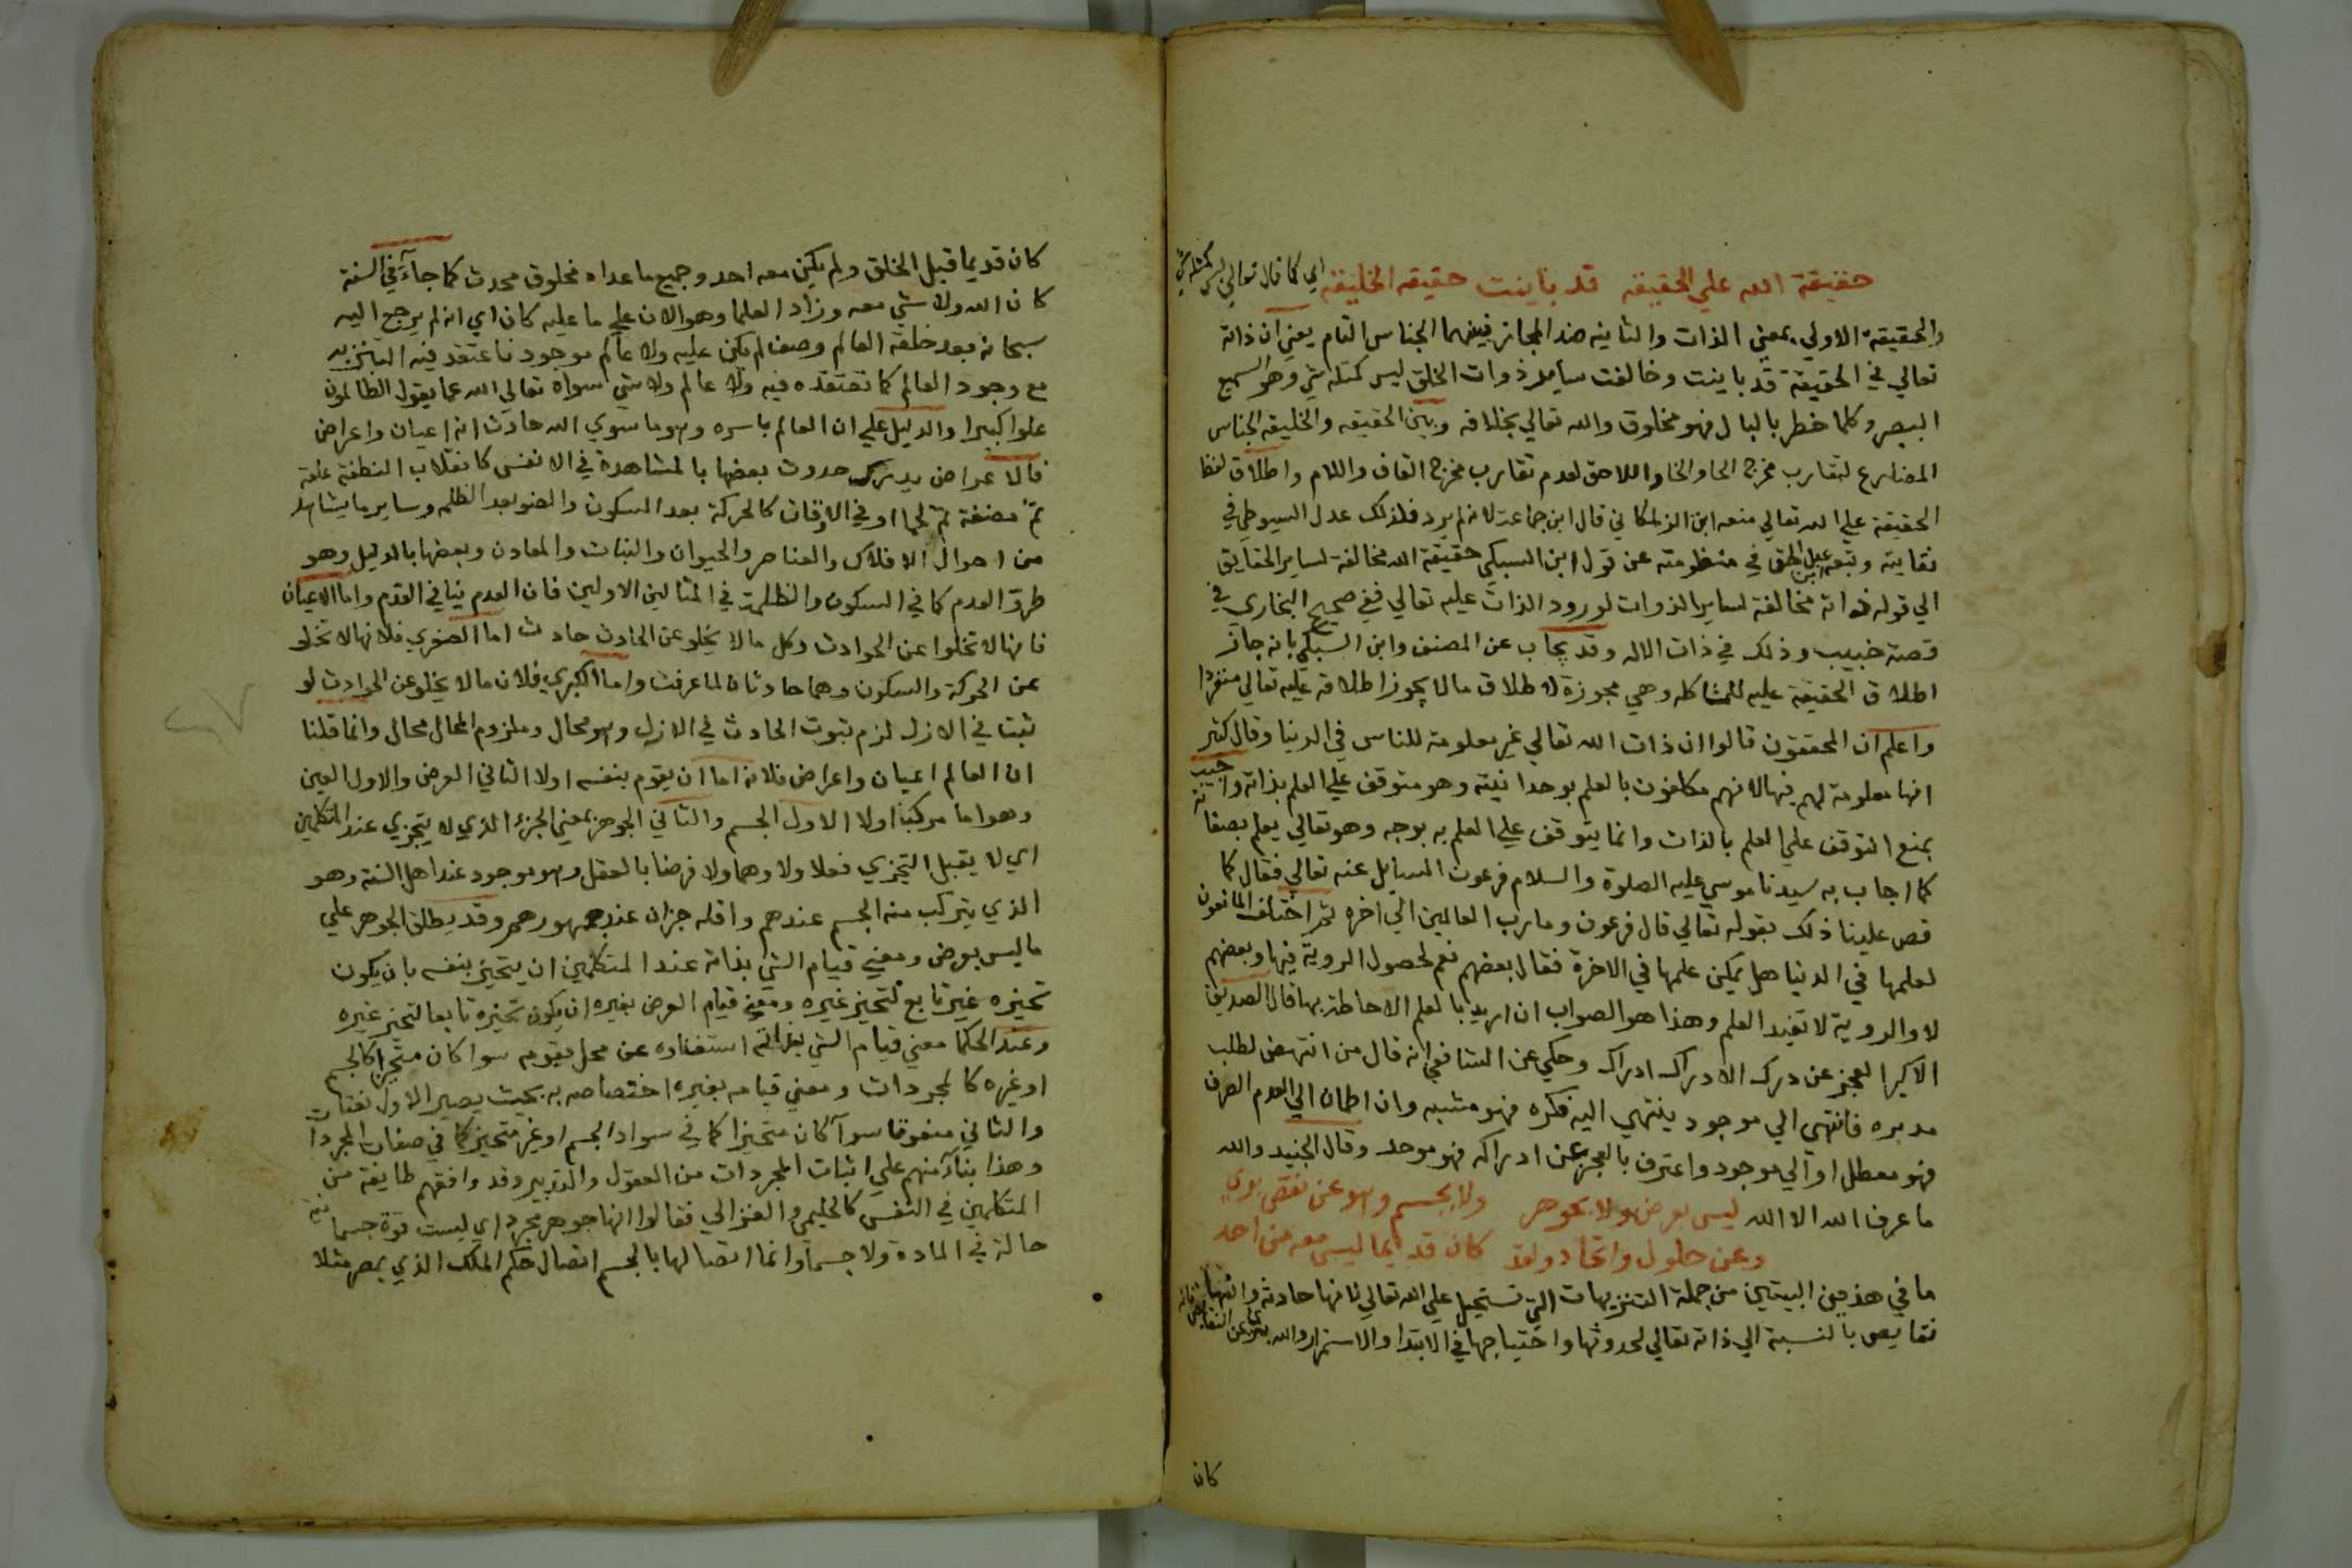 حقيقة الله علي الحقيقه قد باينت حقيقه الخليقه اي كما قال تعالي ليس كمثله شي
والحقيقة الاولي بمعني الذات والثانيه ضد المجاز فبينهما الجناس التام يعني ان ذاته
تعالي في الحقيقة قد باينت وخالفت ساير ذوات الخلق ليس كمثله شي وهو السميع
البصير وكلما خطر بالبال فهو مخلوق والله تعالي بخلافه وبين الحقيقه والخليقه الجناس
المضارع لتقارب مخرج الحا والخا واللاحق لعدم تقارب مخرج القاف واللام واطلاق لفظ
الحقيقة علي الله تعالي منعه ابن الزملكاني قال ابن جماعة لانه لم يرد فلذلك عدل السيوطي في
نقايته وتبعه في منظومته عن قول ابن السبكي حقيقة الله مخالفة لساير الحقايق
الي قوله ذاته مخالفة لساير الذوات لورود الذات عليه تعالي ففي صحيح البخاري في
قصة خبيب وذلك في ذات الاله وقد يجاب عن المصنف وابن السبكي بانه جاز
اطلاق الحقيقة عليه للمشاكله وهي مجوزة لاطلاق ما لا يجوز اطلاقه عليه تعالي منفردا
واعلم ان المحققون قالوا ان ذات الله تعالي غير معلومة للناس في الدنيا وقال كثير
انها معلومة لهم فيها لانهم مكلفون بالعلم بوحدانيته وهو متوقف علي العلم بذاته واجيب
بمنع التوقف علي العلم بالذات وانما يتوقف علي العلم به بوجه وهو تعالي يعلم بصفاته
كما اجاب به سيدنا موسي عليه الصلوة والسلام فرعون السايل عنه تعالي فقال كما
قص علينا ذلك بقوله تعالي قال فرعون وما رب العالمين الي اخره ثم اختلف المانعون
لعلمها في الدنيا هل يمكن علمها في الاخرة فقال بعضهم نعم لحصول الروية فيها وبعضهم
لا والروية لا تفيد العلم وهذا هو الصواب ان اريد بالعلم الاحاطة بها قال الصديق
الاكبر العجز عن درك الادراك ادراك وحكي عن الشافعي انه قال من انتهض لطلب
مدبره فانتهي الي موجود ينتهي اليه فكره فهو مشبه وان اطمان الي العدم الصرف
فهو معطل او الي موجود واعترف بالعجز عن ادراكه فهو موحد وقال الجنيد والله
ما عرف الله الا الله ليس بعرض ولا بجوهر ولا بجسم وهو عن نقص بري
وعن حلول واتحاد ولقد كان قديما ليس معه من احد
ما في هذين البيتين من جملة التنزيهات التي تستحيل علي الله تعالي لانها حادثة وانها
نقايص بالنسبة الي ذاته تعالي لحدوثها واحتياجها في الابتدا والاستمرار والله بري عن النقايص فانه
كان
كان قديما قبل الخلق ولم يكن معه احد وجميع ما عداه مخلوق محدث كما جاء في السنة
كان الله ولا شي معه وزاد العلما وهو الان علي ما عليه كان اي انه لم يرجع اليه
سبحانه بعد خلقة العالم وصف لم يكن عليه ولا عالم موجود فاعتقد فيه التنزيه
مع وجود العالم كما تعتقده فيه ولا عالم ولا شي سواه تعالي الله عما يقول الظالمون
علوا كبيرا والدليل علي ان العالم باسره وهو ما سوي الله حادث انه اعيان واعراض
فالاعراض يدرك حدوث بعضها بالمشاهدة في الانفس كانقلاب النطفة علقة
ثم مضغة ثم لحما او في الافاق كالحركة بعد السكون والضو بعد الظلمه وساير ما يشاهد
من احوال الافلاك والعناصر والحيوان والنبات والمعادن وبعضها بالدليل وهو
طرو العدم كما في السكون والظلمة في المثالين الاولين فان العدم ينافي القدم واما الاعيان
فانها لا تخلوا عن الحوادث وكل ما لا يخلو عن الحادث حادث اما الصغري فلانها لا تخلو
عن الحركة والسكون وهما حادثان لما عرفت واما الكبري فلان ما لا يخلو عن الحوادث لو
ثبت في الازل لزم ثبوت الحادث في الازل وهو محال وملزوم المحال محال وانما قلنا
ان العالم اعيان واعراض فلانه اما ان يقوم بنفسه اولا الثاني العرض والاول العين
وهو اما مركبا اولا الاول الجسم والثاني الجوهر بمعني الجزء الذي لا يتجزي عند المتكلمين
اي لا يقبل التجزي فعلا ولا وهما ولا فرضا بالعقل وهو موجود عند اهل السنة وهو
الذي يتركب منه الجسم عندهم واقله جزان عند جمهورهم وقد يطلق الجوهر علي
ما ليس بعرض ومعني قيام الشي بذاته عند المتكلمين ان يتحيز بنفسه بان يكون
تحيزه غير تابع لتحيز غيره ومعني قيام العرض بغيره ان يكون تحيزه تابعا لتحيز غيره
وعند الحكما معني قيام الشي بذاته استغناوه عن محل يقومه سوا كان متحيزا كالجسم
او غيره كالمجردات ومعني قيامه بغيره اختصاصه به بحيث يصير الاول نعتا
والثاني منعوتا سوآ كان متحيزا كما في سواد الجسم او غير متحيز كما في صفات المجردات
وهذا بنآء منهم علي اثبات المجردات من العقول والتدبير وقد وافقهم طايفة من
المتكلمين في النفس كالحليمي والغزالي فقالوا انها جوهر مجرد اي ليست قوة جسمانية
حالة في المادة ولا جسما وانما اتصالها بالجسم اتصال حكم الملك الذي بمصر مثلا